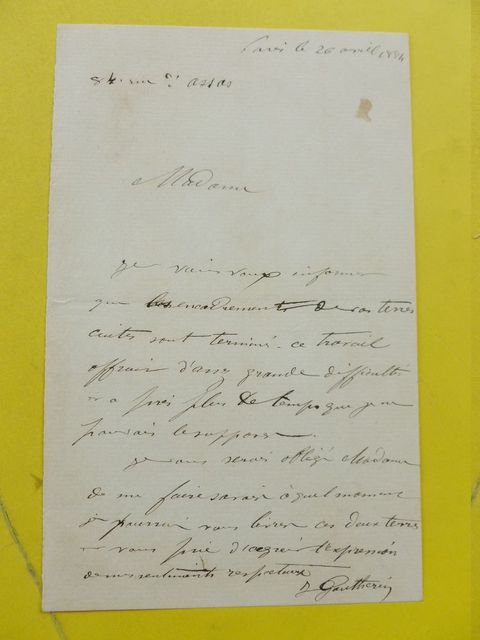 Paris le 26 avril 1884
84. rue d'assas
Madame
je viens vous informer
que les encadrements de vos terres
cuites sont terminé. ce travail
offrait d'assez grande difficultés
et a pris plus de temps que je ne
pouvais le supposer.
je vous serais obligé Madame
de me faire savoir à quel moment
je pourrai vous livrer ces deux terres
et vous prie d'agréer l'expression
de mes sentiments respectueux
J Gautherin